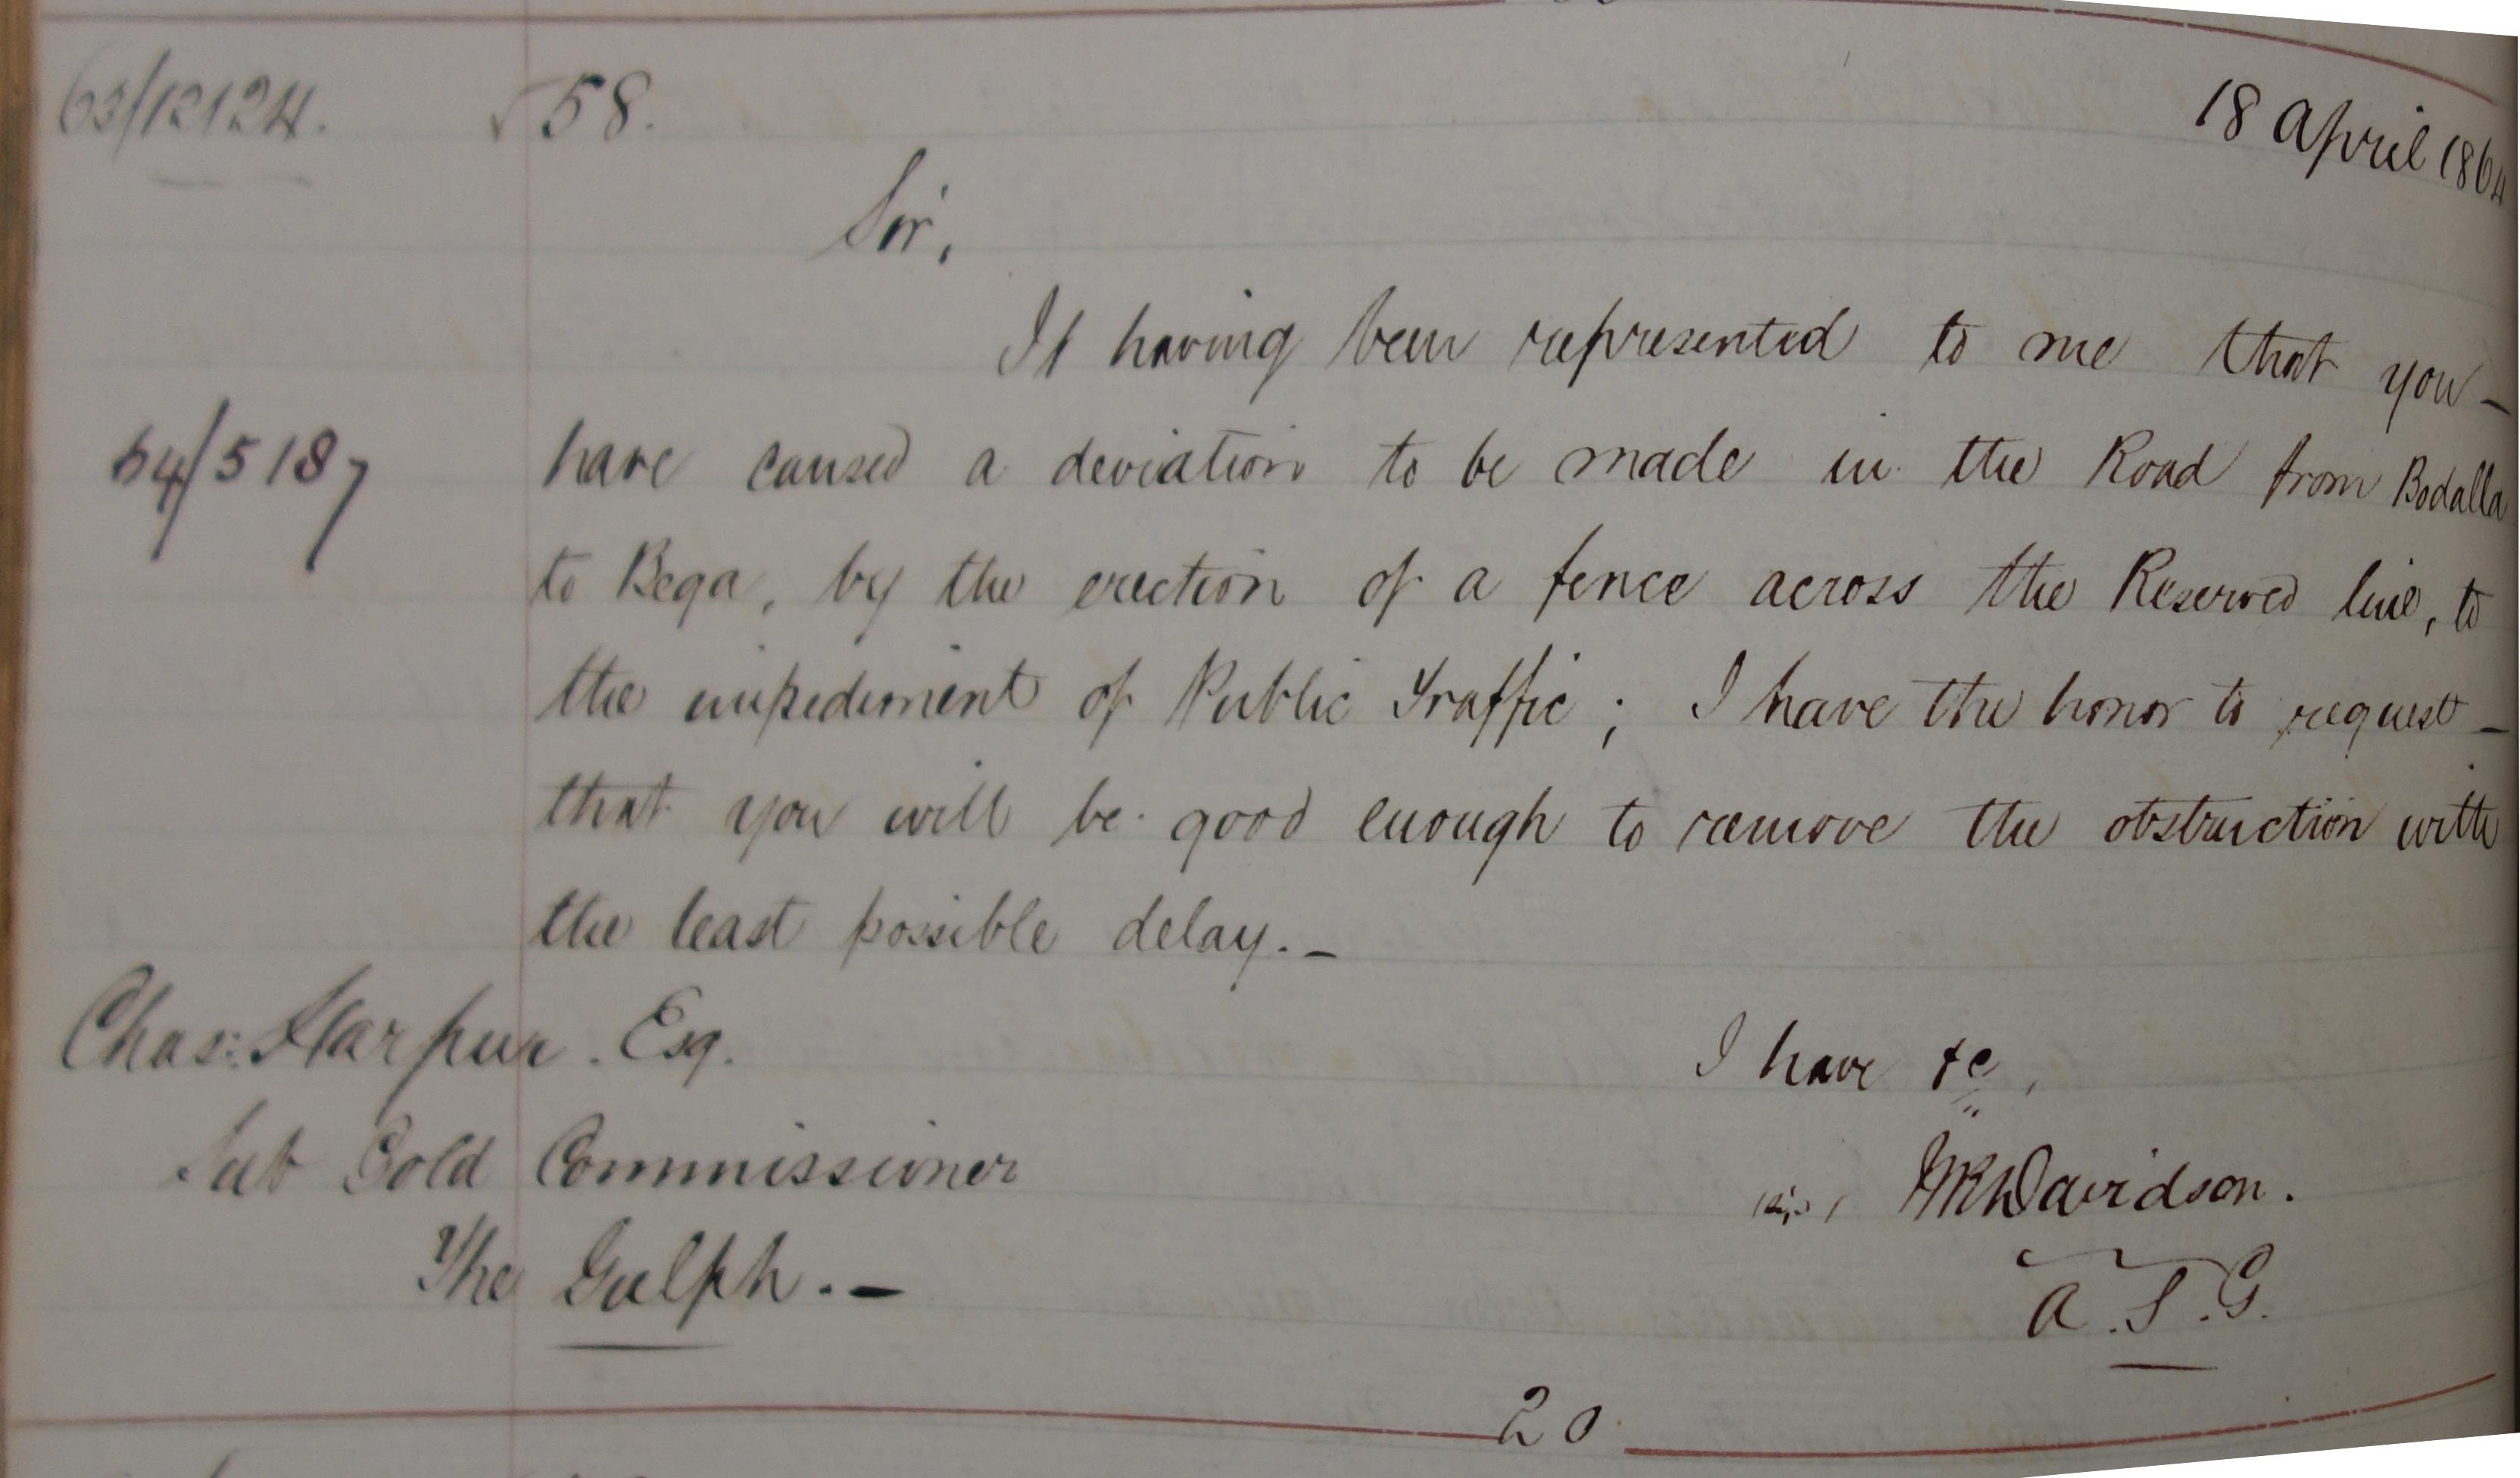 63/12124. √58. 18 April 1864
Sir,
It having been represented to me that you -
64/5187 have caused a deviation to be made in the Road from Bodalla
to Bega, by the erection of a fence across the Reserved line, to
the impediment of Public Traffic; I have the honor to request -
that you will be good enough to remove the obstruction with
the least possible delay. -
Chas: Harpur. Esq.
I have &c,
Sub Gold Commissioner
WRDavidson.
The Gulph. -
A.S.G.
20